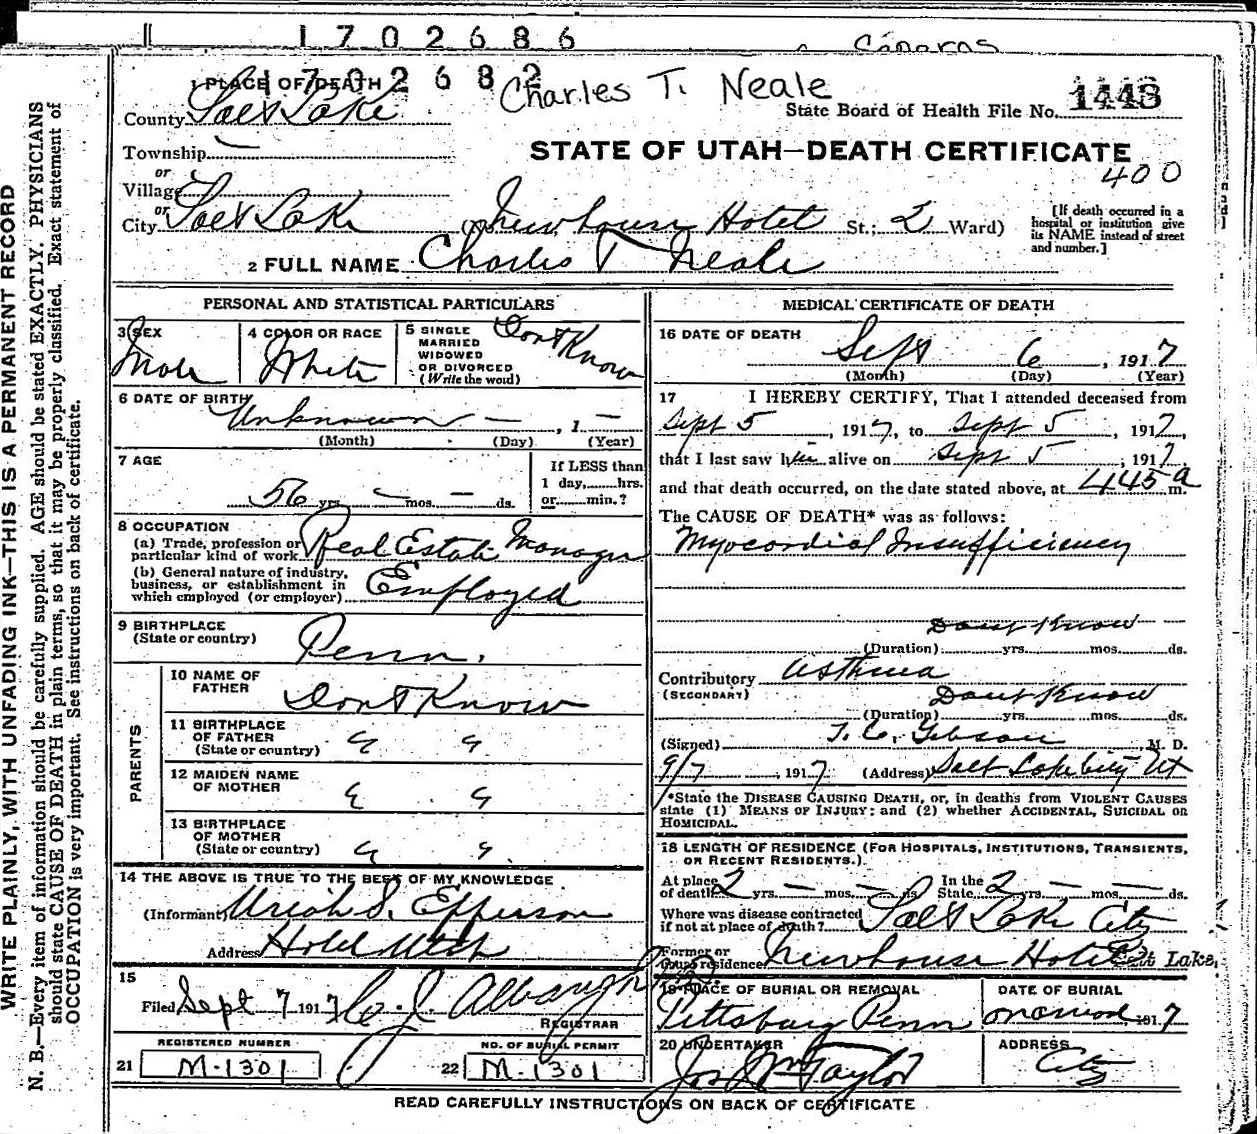 1702686
1702682
Charles T. Neale
1 PLACE OF DEATH
State Board of Health File No. 1443
County Salt Lake
STATE OF UTAH—DEATH CERTIFICATE
400
Township —
or
Village
or
City Salt Lake (No. Newhouse Hotel St.; 2 Ward)
[If death occurred in a hospital or institution give its NAME instead of street and number.]
2 FULL NAME Charles T Neale
PERSONAL AND STATISTICAL PARTICULARS
3 SEX Male
4 COLOR OR RACE White
5 SINGLE MARRIED WIDOWED OR DIVORCED (Write the word) Dont Know
6 DATE OF BIRTH Unknown — , 1 —
(Month) (Day) (Year)
7 AGE
56 yrs. — mos. — ds.
If LESS than 1 day, hrs. or min.?
8 OCCUPATION
(a) Trade, profession or particular kind of work Real Estate Manager
(b) General nature of industry, business, or establishment in which employed (or employer) Employed
9 BIRTHPLACE (State or country) Penn.
PARENTS
10 NAME OF FATHER Dont Know
11 BIRTHPLACE OF FATHER (State or country) " "
12 MAIDEN NAME OF MOTHER " "
13 BIRTHPLACE OF MOTHER (State or country) " "
14 THE ABOVE IS TRUE TO THE BEST OF MY KNOWLEDGE
(Informant) Uriah S. Epperson
Address Hotel Utah
15
Filed Sept 7 1917 J. Albaugh
REGISTRAR
REGISTERED NUMBER
21 M-1301
NO. OF BURIAL PERMIT
22 M-1301
MEDICAL CERTIFICATE OF DEATH
16 DATE OF DEATH
Sept 6, 1917
(Month) (Day) (Year)
17 I HEREBY CERTIFY, That I attended deceased from
Sept 5, 1917, to Sept 5, 1917,
that I last saw him alive on Sept 5, 1917
and that death occurred, on the date stated above, at 445 a m.
The CAUSE OF DEATH* was as follows:
Myocardial Insufficiency
Dont Know
(Duration) yrs. mos. ds.
Contributory Asthma
(SECONDARY) Dont Know
(Duration) yrs. mos. ds.
(Signed) T. C. Gibson M. D.
9/7, 1917 (Address) Salt Lake City Ut
*State the DISEASE CAUSING DEATH, or, in deaths from VIOLENT CAUSES
state (1) MEANS OF INJURY; and (2) whether ACCIDENTAL, SUICIDAL OR
HOMICIDAL.
18 LENGTH OF RESIDENCE (FOR HOSPITALS, INSTITUTIONS, TRANSIENTS,
OR RECENT RESIDENTS.)
At place of death 2 yrs. — mos. — ds. In the State 2 yrs. — mos. — ds.
Where was disease contracted if not at place of death? Salt Lake City
Former or usual residence Newhouse Hotel Salt Lake,
19 PLACE OF BURIAL OR REMOVAL Pittsburg Penn
DATE OF BURIAL 1917
20 UNDERTAKER Jos Wm Taylor
ADDRESS City
READ CAREFULLY INSTRUCTIONS ON BACK OF CERTIFICATE
WRITE PLAINLY, WITH UNFADING INK—THIS IS A PERMANENT RECORD
N. B.—Every item of information should be carefully supplied. AGE should be stated EXACTLY. PHYSICIANS
should state CAUSE OF DEATH in plain terms, so that it may be properly classified. Exact statement of
OCCUPATION is very important. See instructions on back of certificate.